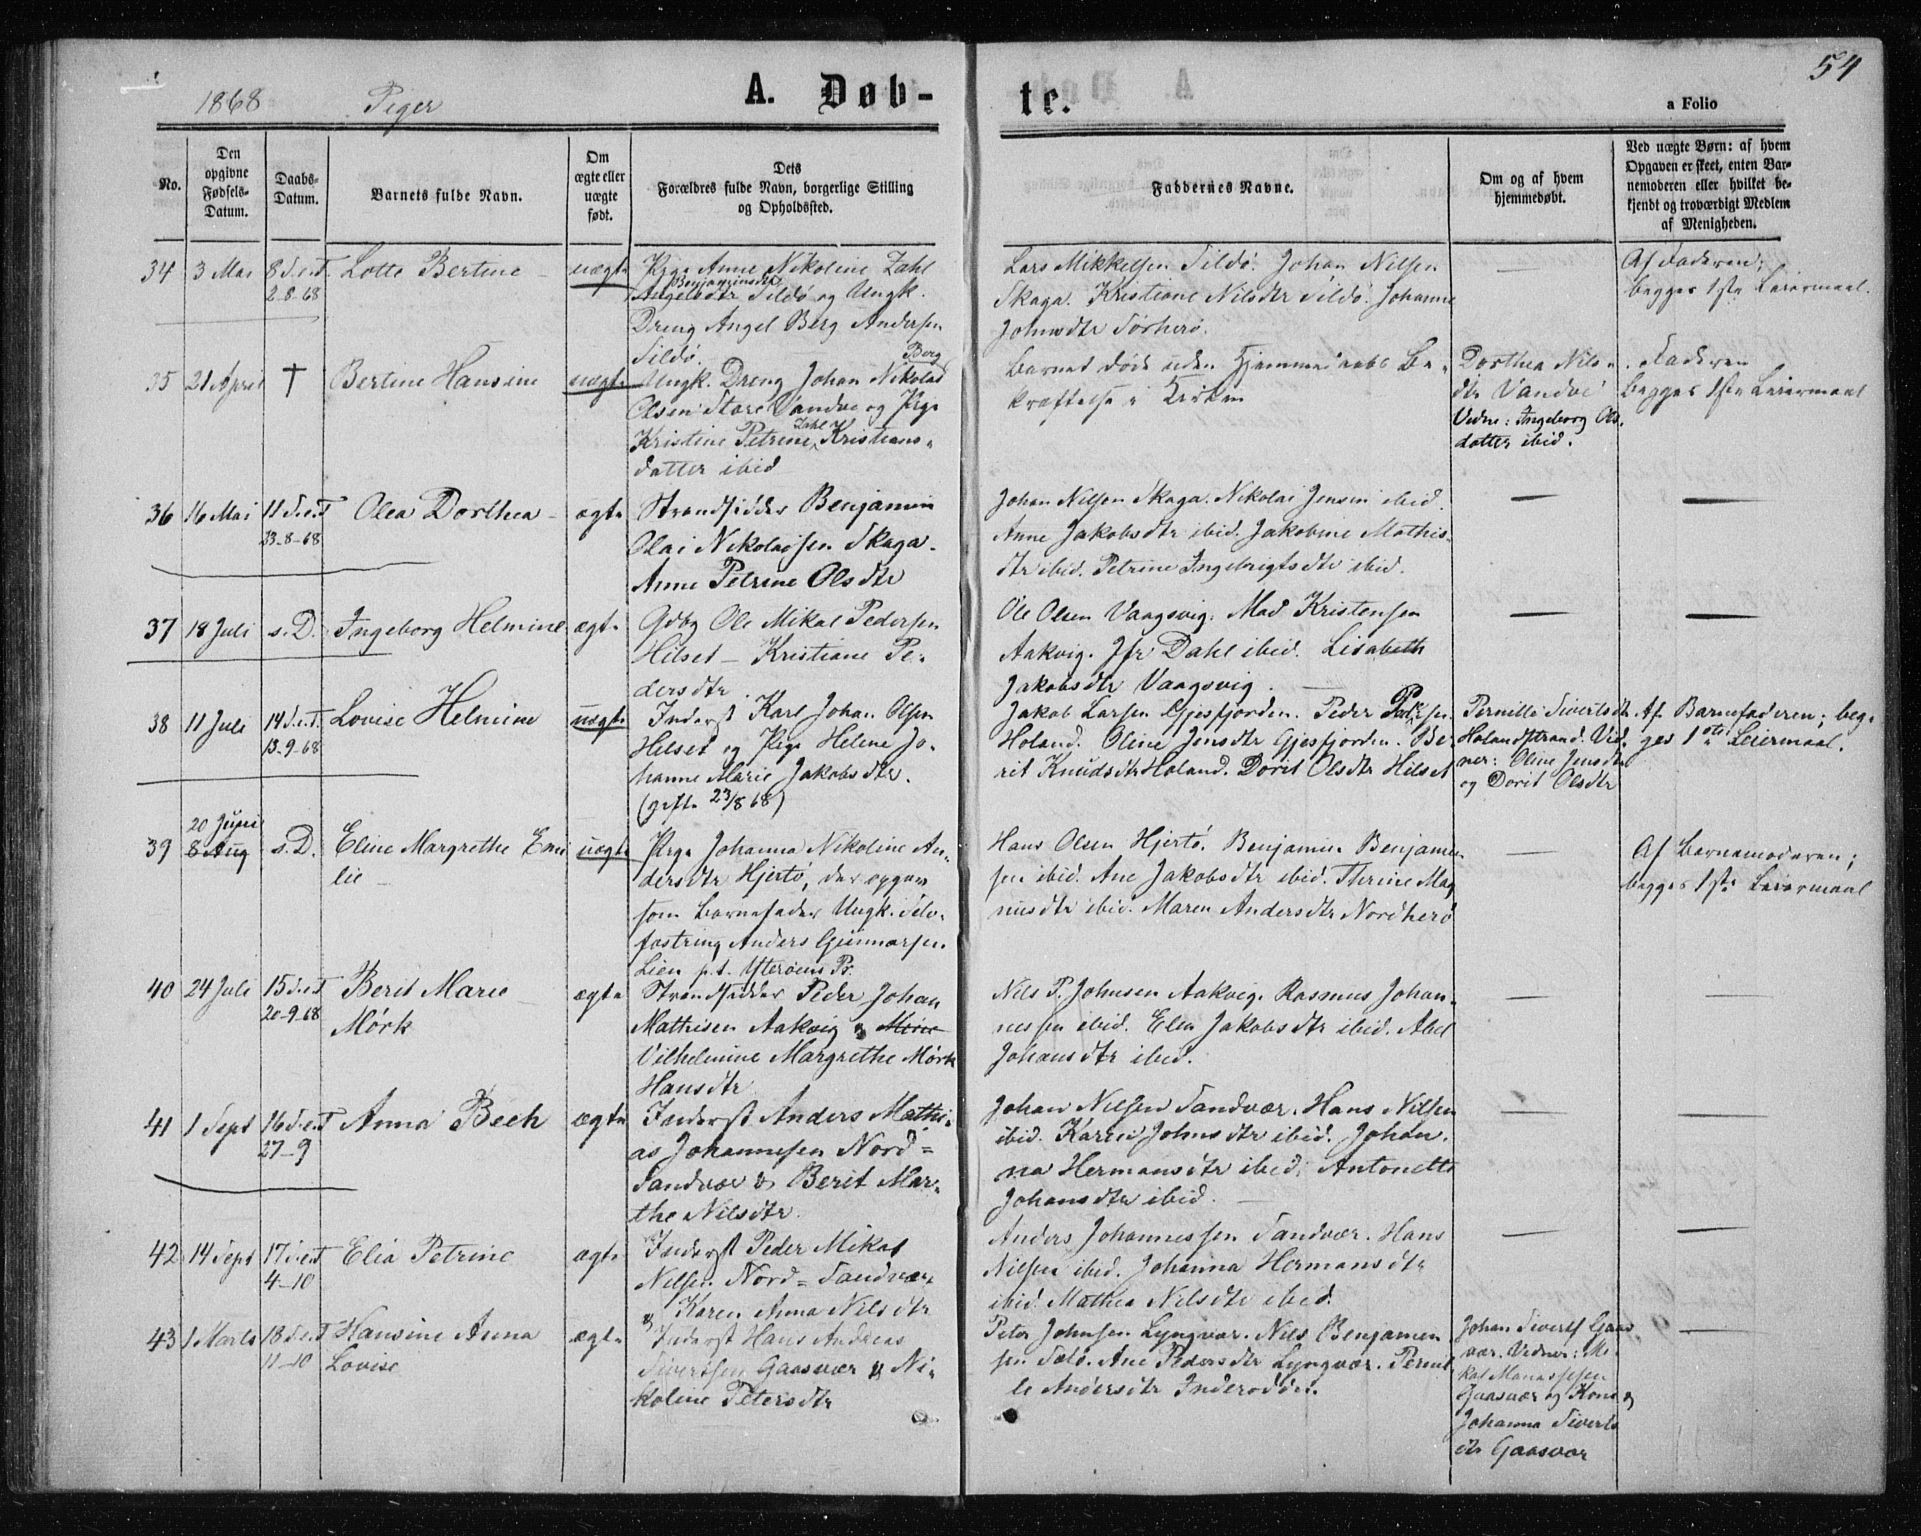 54
1868 Piger
A. Døb-
te.
a Folio
No.
Den opgivne Fødsels-Datum.
Daabs-Datum.
Barnets fulde Navn.
Om ægte eller uægte født.
Dets Forældres fulde Navn, borgerlige Stilling og Opholdssted.
Faddernes Navne.
Om og af hvem hjemmedøbt.
Ved uægte Børn: af hvem Opgaven er skeet, enten Barnemoderen eller hvilket bekjendt og troværdigt Medlem af Menigheden.
34 3 Mai 8 S.e.T. 2-8-68 Lotte Bertine uægte
Pige Anne Nikoline Zahl
Benjaminsdtr
Angelsdtr Sildø og Ungk.
Dreng Angel Berg Andersen
Sildø.
Lars Mikkelsen Sildø. Johan Nilsen
Skaga. Kristiane Nilsdtr Sildø. Johanne
Johnsdtr Sørherø.
Af Faderen;
begges 1ste Leiermaal.
35 21 April † Bertine Hansine uægte
Berg
Ungk. Dreng Johan Nikolai
Olsen Store Vandve og Pige
Zahl
Kristine Petrine Kristians-
datter ibid
Barnet døde uden Hjemmedaabs Be-
kræftelse i Kirken
Dorthea Nils-
dtr Vandve
Vidne: Ingeborg Ols-
datter ibid.
Faderen
begges 1ste Leiermaal
36 16 Mai 11 S.e.T 23-8-68 Olea Dorthea ægte
Strandsidder Benjamin
Olai Nikolaisen Skaga.
Anne Petrine Olsdtr
Johan Nilsen Skaga. Nikolai Jensen ibid.
Anne Jakobsdtr ibid. Jakobine Mathis-
dtr ibid. Petrine Ingebrigtsdtr ibid.
37 18 Juli s.D. Ingeborg Helmine ægte
Gdbg Ole Mikal Pedersen
Hilset - Kristiane Pe-
dersdtr.
Ole Olsen Vaagsvig. Mad Kristensen
Aakvig. Jfr Dahl ibid. Lisabeth
Jakobsdtr Vaagsvig.
38 11 Juli 14 S.e.T. 13-9-68 Lovise Helmine uægte
Inderst Karl Johan Olsen
Hilset og Pige Helene Jo-
hanne Marie Jakobsdtr.
(gifte 23/8 68)
Jakob Larsen Gjesfjorden. Peder Pedersen
Holand. Oline Jensdtr Gjesfjorden. Be-
rit Knudsdtr Holand. Dorit Olsdtr Hilset
Pernille Sivertsdtr
Holandstrand. Vid-
ner: Oline Jensdtr
og Dorit Olsdtr
Af Barnefaderen; beg-
ges 1ste Leiermaal.
39 20 Juni 8 Aug s.D. Eline Margrethe Emi
lie uægte
Pige Johanna Nikoline An-
dersdtr Hjertø, der opgav
som Barnefader Ungk. Selv-
fostring Anders Gunnarsen
Lien p.t. Ytterøens Pr.
Hans Olsen Hjertø. Benjamin Benjamin-
sen ibid. Ane Jakobsdtr ibid. Thrine Mag
nusdtr ibid. Maren Andersdtr Nordherø
Af Barnemoderen;
begges 1ste Leiermaal
40 24 Juli 15 S.e.T 20-9-68 Berit Marie
Mørk ægte
Strandsidder Peder Johan
Mathisen Aakvig & Marie
Vilhelmine Margrethe Mørk
Hansdtr
Nils P. Johnsen Aakvig. Rasmus Johan-
nessen ibid. Elen Jakobsdtr ibid. Abel
Johansdtr ibid.
41 1 Sept 16 S.e.T 27-9 Anna Bech ægte
Inderst Anders Mathi-
as Johannesen Nord-
Sandvær & Berit Mar-
the Nilsdtr.
Johan Nilsen Sandvær. Hans Nilsen
ibid. Karen Johnsdtr ibid. Johan-
na Hermansdtr ibid. Antonette
Johansdtr ibid.
42 14 Sept 17 S.e.T 4-10 Elia Petrine ægte
Inderst Peder Mikal
Nilsen Nord-Sandvær
& Karen Anna Nilsdtr
Anders Johannessen Sandvær. Hans
Nilsen ibid. Johanna Hermansdtr
ibid. Mathea Nilsdtr ibid.
43 1 Marts 18 S.e.T 11-10 Hansine Anna
Lovise ægte
Inderst Hans Andreas
Sivertsen Gaasvær & Ni-
koline Petersdtr
Peter Johnsen Lyngvær. Nils Benjamin
sen Solø. Ane Pedersdtr Lyngvær. Pernil
le Andersdtr Inderodden.
Johan Sivertf Gaas
vær. Vidner: Mi-
kal Manassesen
Gaasvær og Kone &
Johanna Siverts
dtr Gaasvær